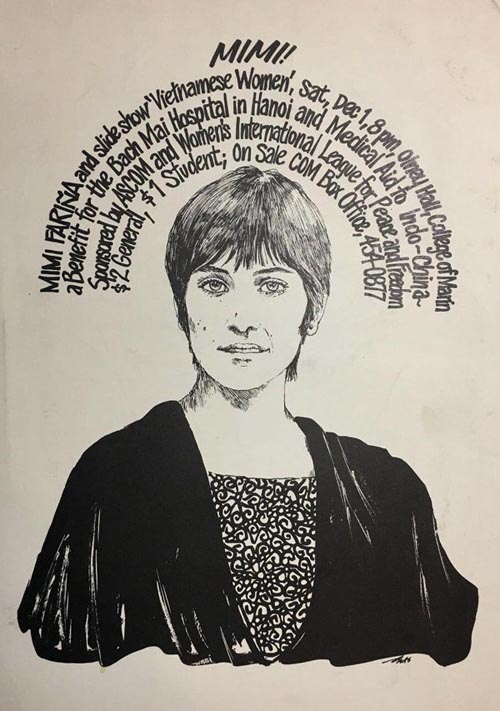 MIMI!!
MIMI FARIÑA and slide show 'Vietnamese Women', Sat, Dec 1, 8 pm Olney Hall, College of Marin
a Benefit for the Bach Mai Hospital in Hanoi and Medical Aid to Indo-China
Sponsored by ASCOM and Women's International League for Peace and Freedom
$2 General, $1 Student; On Sale COM Box Office, 454-0877